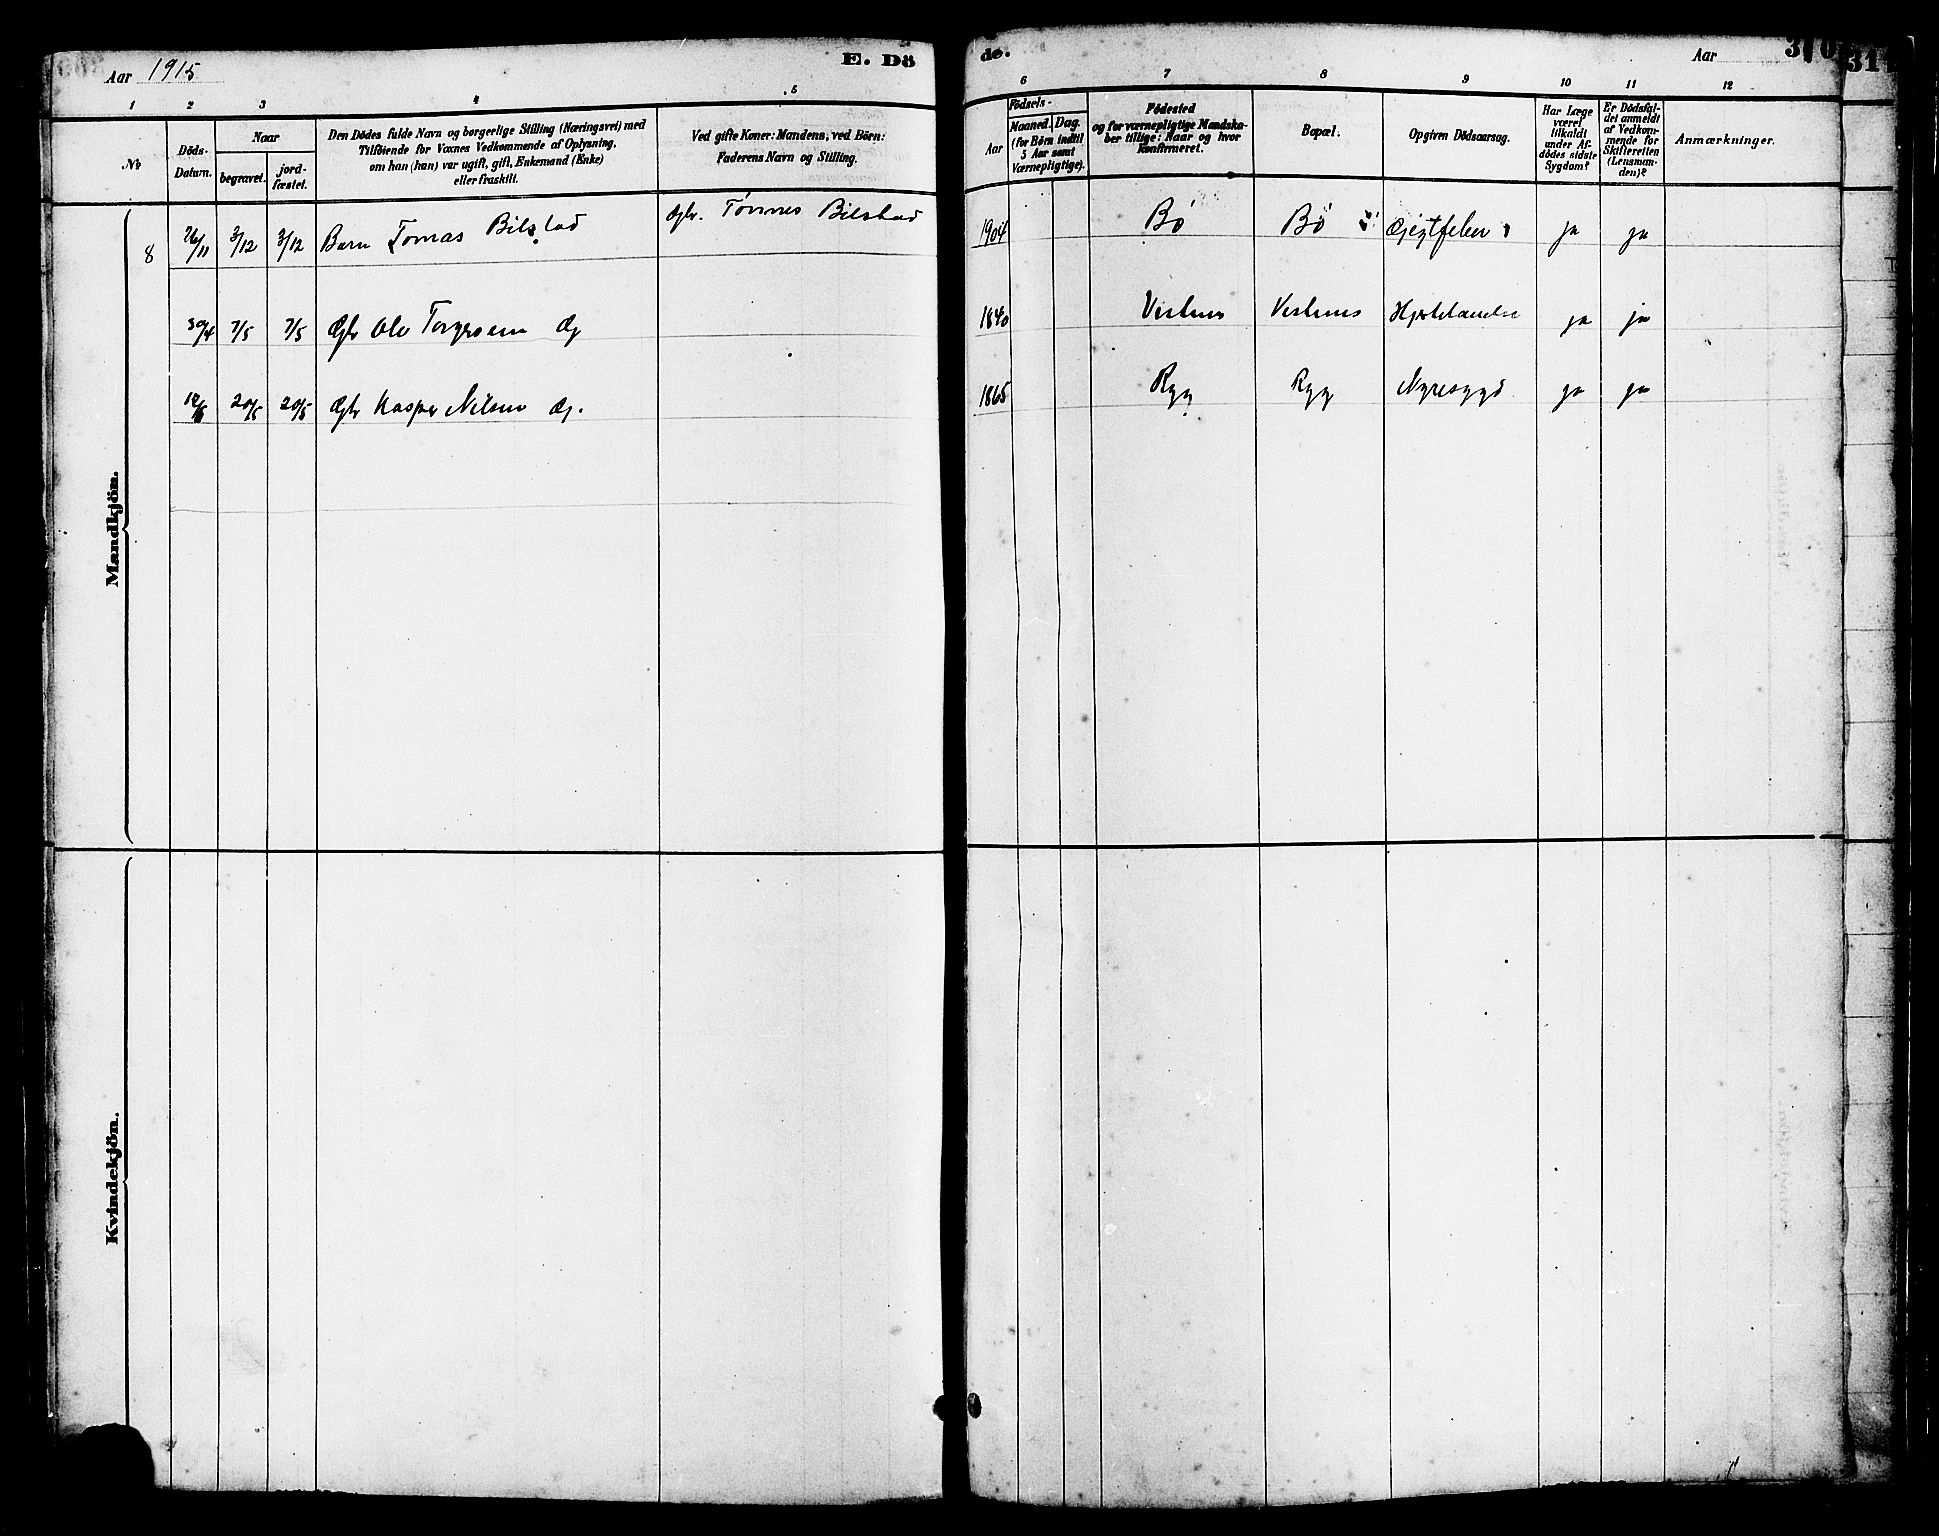 Aar 1915
E. Dö
de.
Aar
370
31
1 2 3 4 5 6 7 8 9 10 11 12
No
Döds-Datum.
Naar
begravet.
jord-fæstet.
Den Dödes fulde Navn og borgerlige Stilling (Næringsvei) med
Tilföiende for Voxnes Vedkommende af Oplysning,
om han (hun) var ugift, gift, Enkemand (Enke)
eller fraskilt.
Ved gifte Koner: Mandens, ved Börn:
Faderens Navn og Stilling.
Födsels-
Aar
Maaned. Dag.
(for Börn indtil
5 Aar samt
Værnepligtige).
Födested
og for værnepligtige Mandska-
ber tillige: Naar og hvor
konfirmeret.
Bopæl.
Opgiven Dödsaarsag.
Har Læge
været
tilkaldt
under Af-
dödes sidste
Sygdom?
Er Dödsfal-
det anmeldt
af Vedkom-
mende for
Skifteretten
(Lensman-
den)?
Anmærkninger.
Mandkjön.
8 26/11 3/12 3/12 Barn Tomas Bilstad Gbr. Tönnes Bilstad 1904 Bö Bö ja ja
30/4 7/5 7/5 Gbr Ole Torgersen 1840 ja ja
20/5 20/5 Gbr Kasper Nilsen 1865 Ryg Ryg Nyresygd ja ja
Kvindekjön.